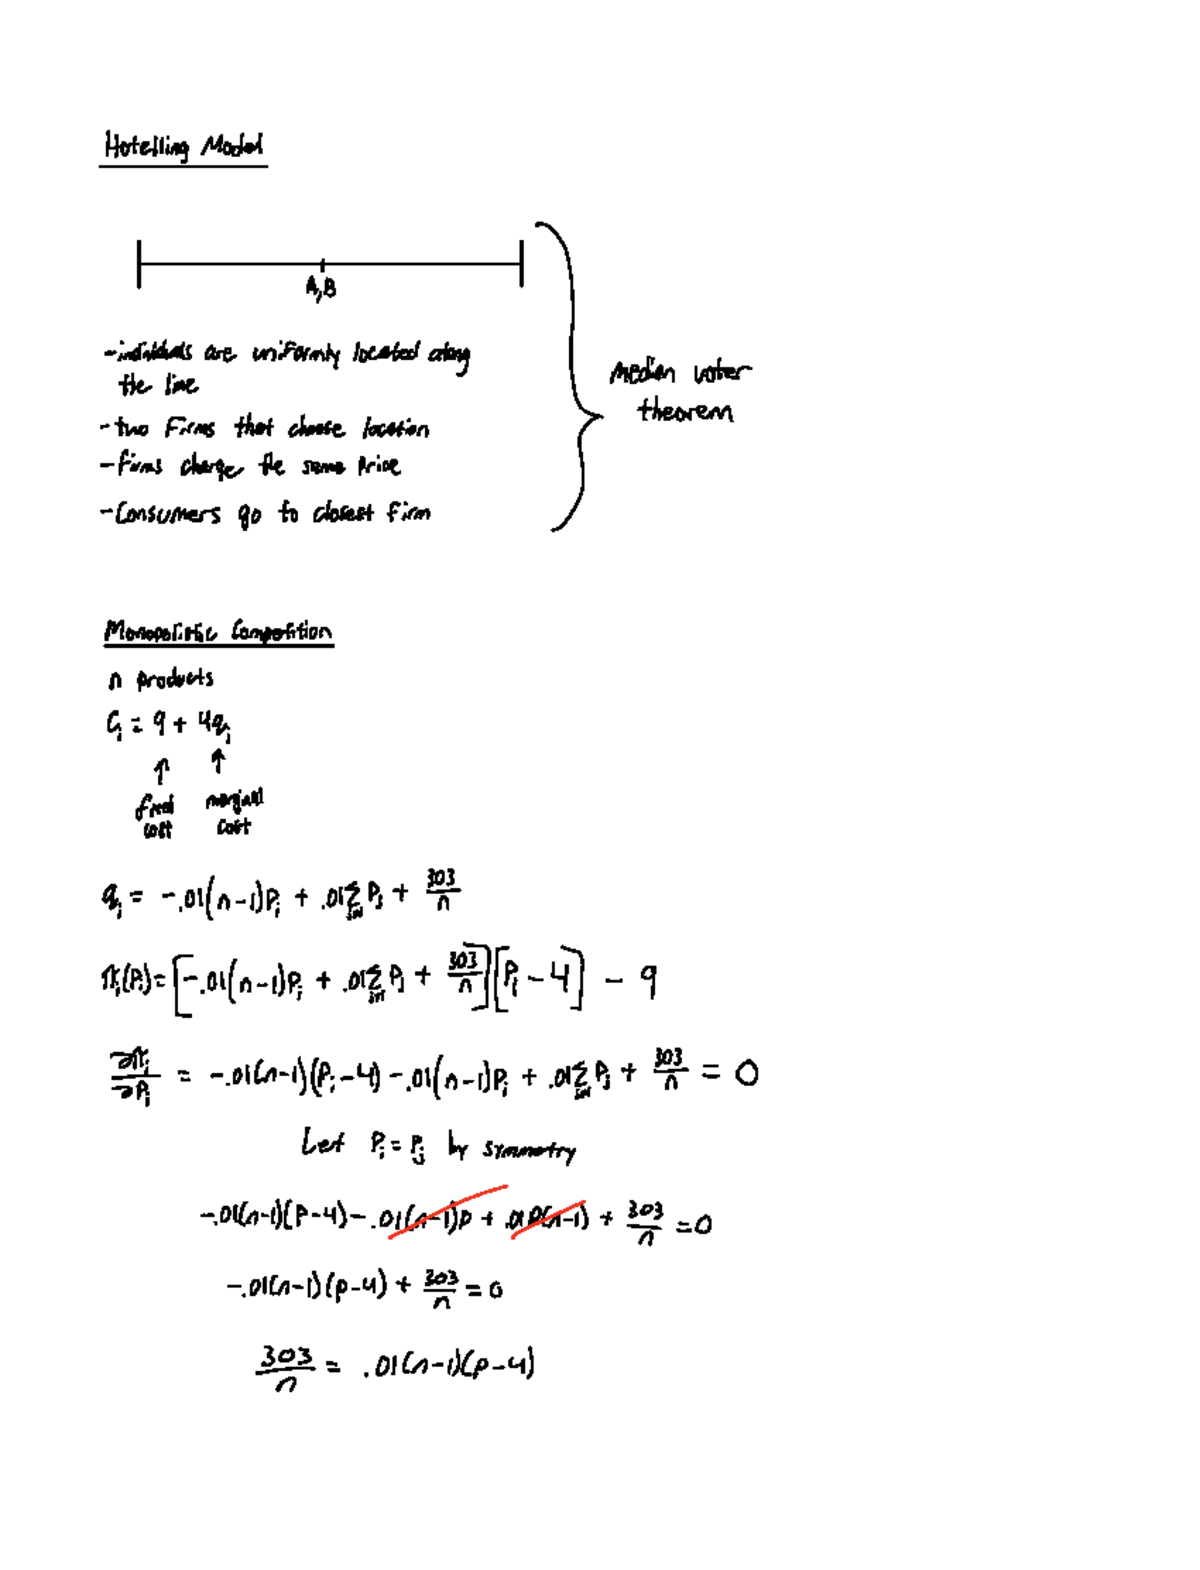 Hotelling Model
A,B
-individuals are uniformly located along
the line
-two Firms that choose location
-Firms charge the same Price
-Consumers go to closest firm
Median voter
theorem
Monopolistic Competition
n products
Cᵢ = 9 + 4qᵢ
↑ ↑
fixed marginal
cost cost
qᵢ = -.01(n-1)Pᵢ + .01 Σ Pⱼ + 303/n
πᵢ(Pᵢ) = [-.01(n-1)Pᵢ + .01 Σ Pⱼ + 303/n][Pᵢ - 4] - 9
∂πᵢ/∂Pᵢ = -.01(n-1)(Pᵢ-4) - .01(n-1)Pᵢ + .01 Σ Pⱼ + 303/n = 0
Let Pᵢ = Pⱼ by symmetry
-.01(n-1)(P-4) - .01(n-1)P + .01P(n-1) + 303/n = 0
-.01(n-1)(P-4) + 303/n = 0
303/n = .01(n-1)(P-4)